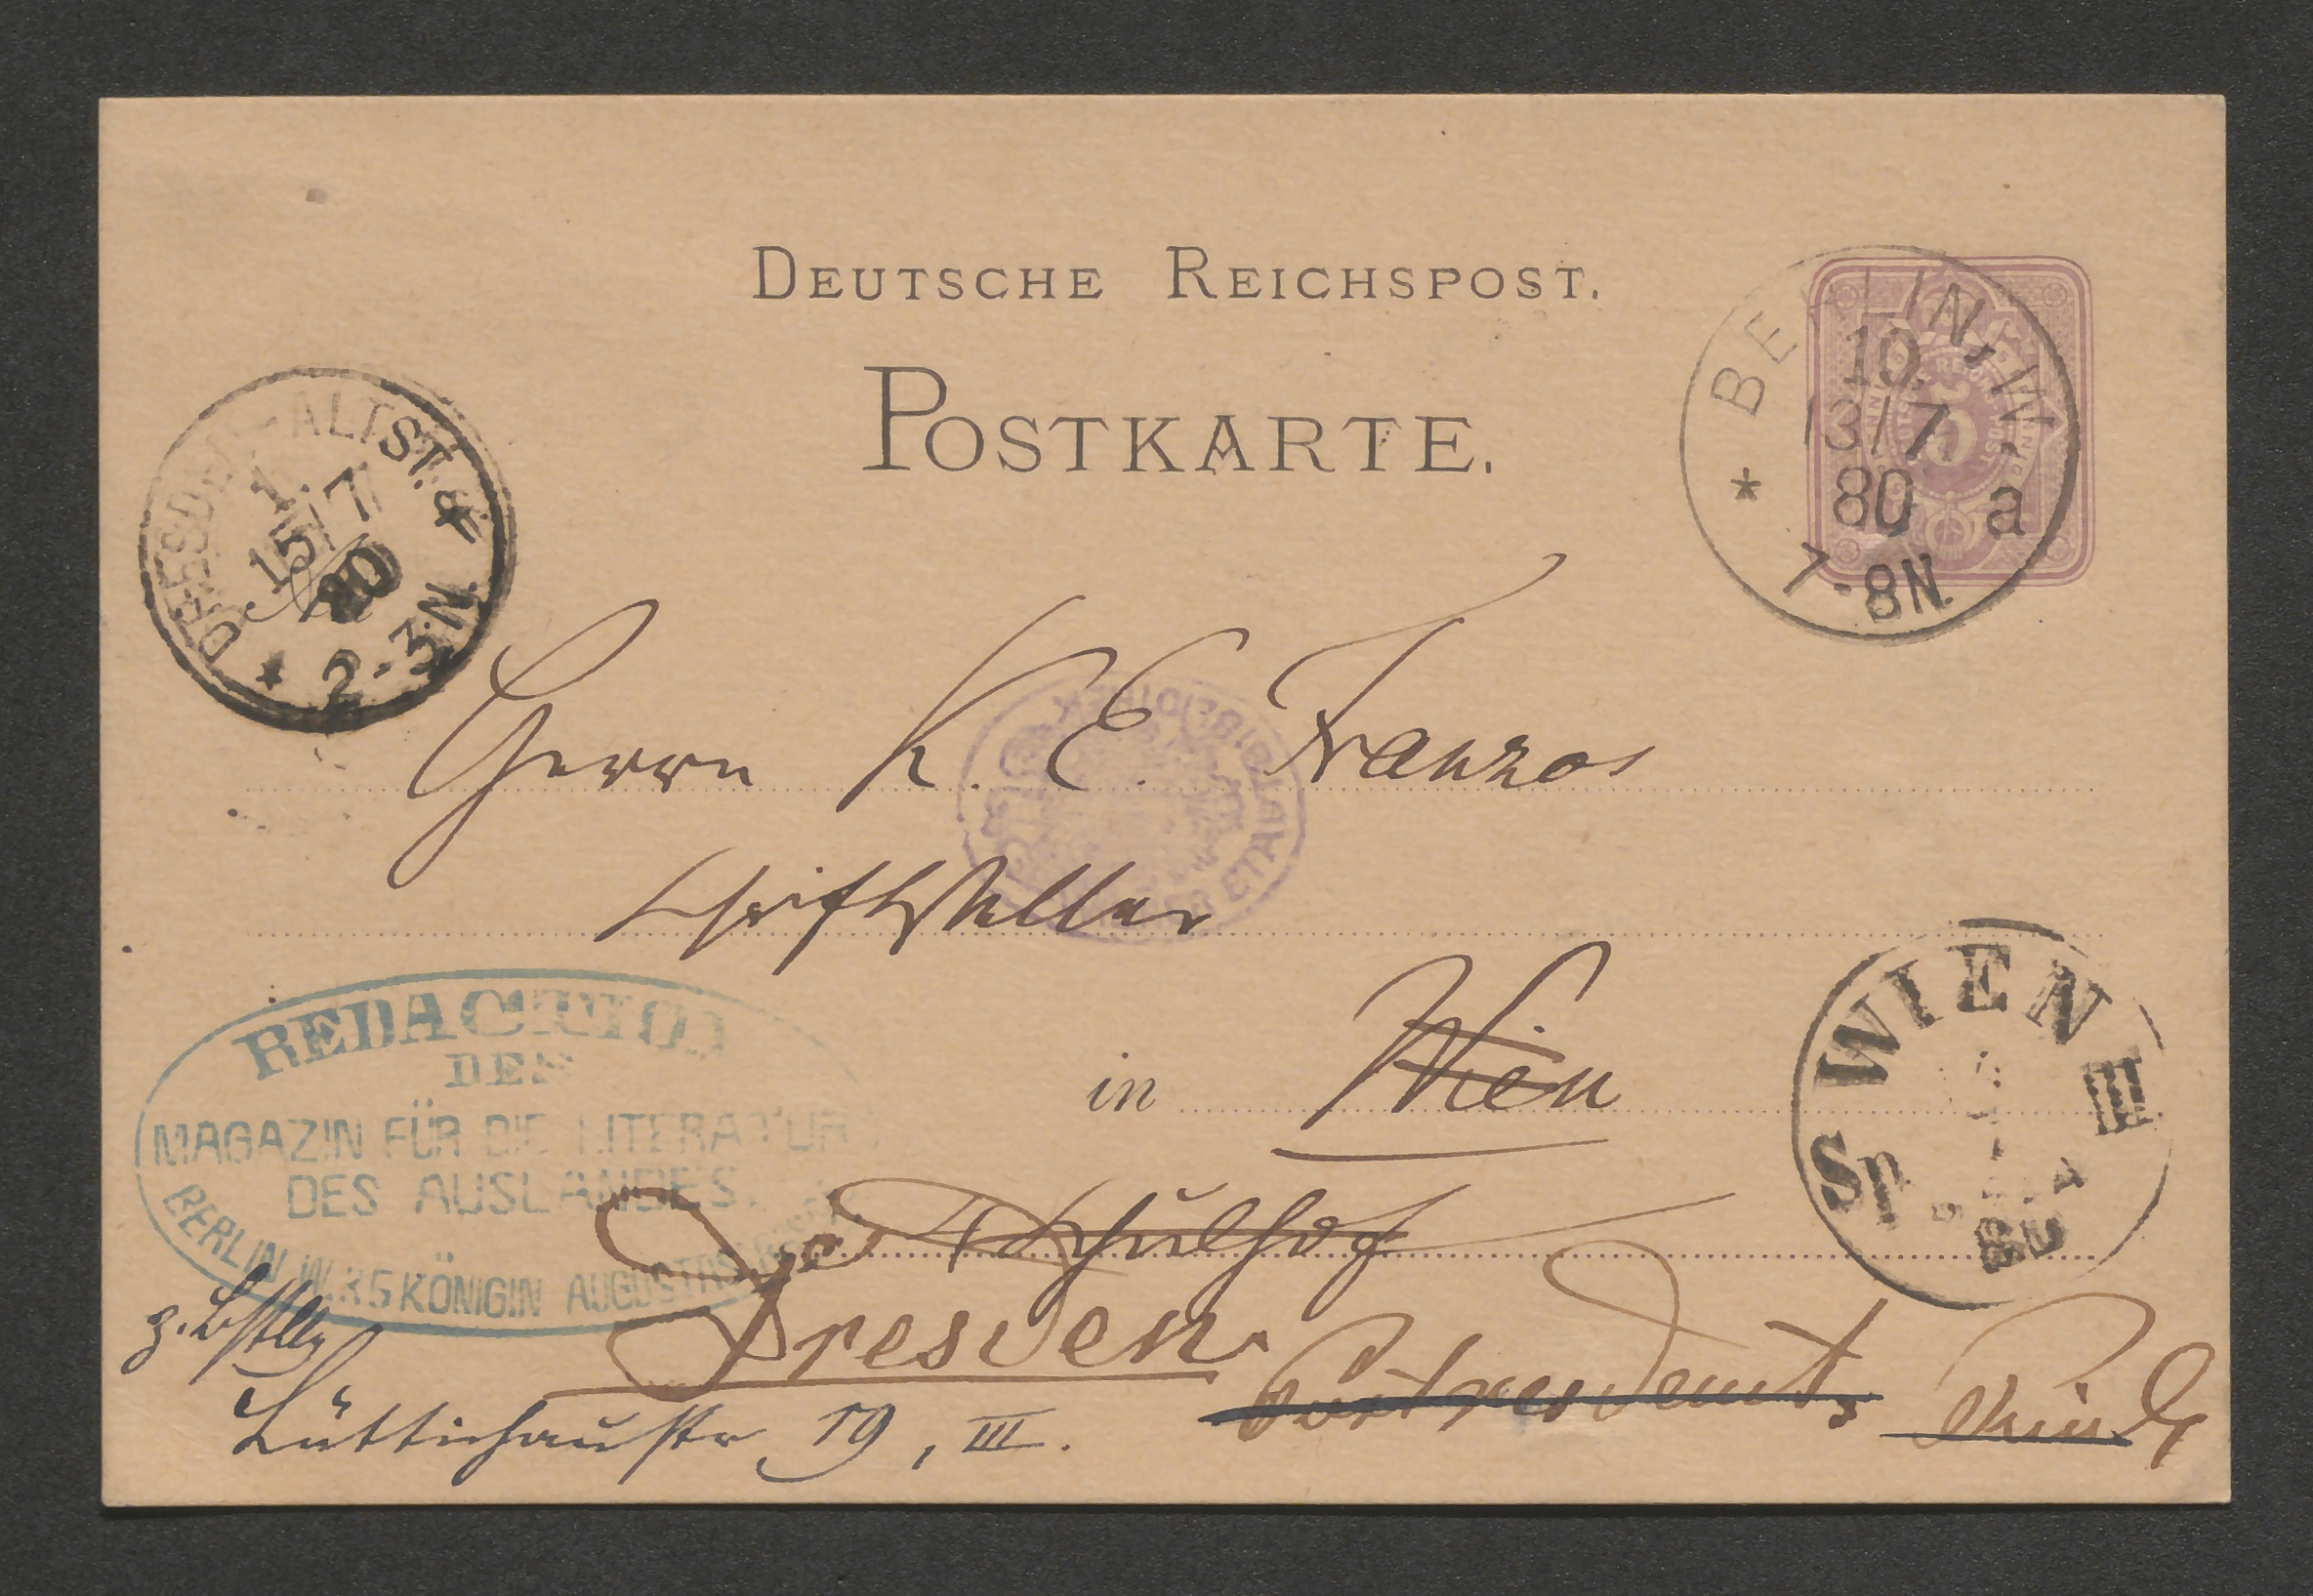 DEUTSCHE REICHSPOST.
POSTKARTE.
BERLIN, W.
10.
13/7
80 a
7-8N.
DRESDEN-ALTST.
1.
15/7
80
2-3.N.
Herrn K. E. Franzos
Schriftsteller
in Wien
Schulhof
WIEN III
80
REDACTION
DES
MAGAZIN FÜR DIE LITERATUR
DES AUSLANDES.
BERLIN W. KÖNIGIN AUGUSTASTR
Dresden.
Postrestante
z. Bstllg
Lüttichaustr 19, III.